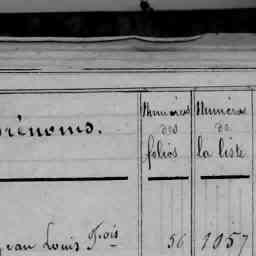 Prénoms.
Numéros des folios
Numéro de la liste
Jean Louis Frois
56
1057